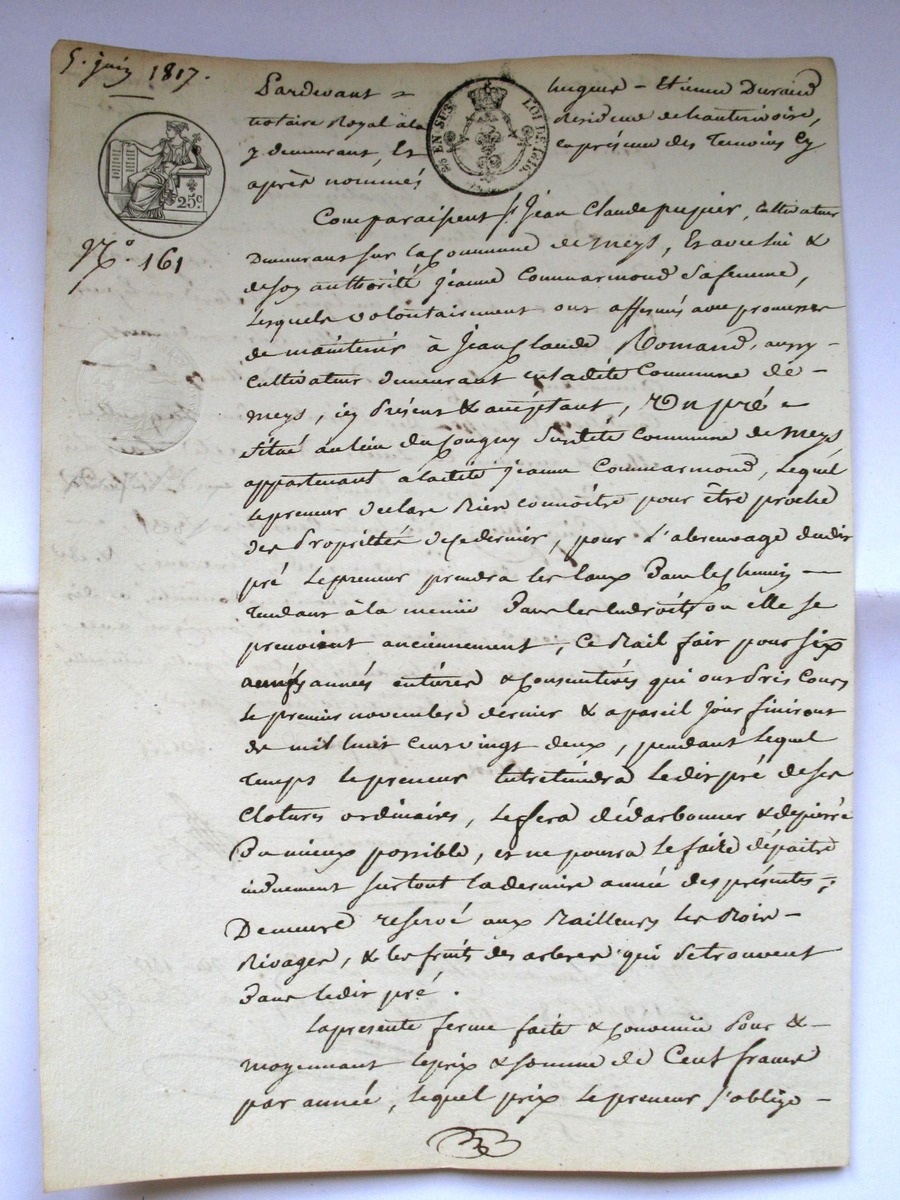 5. juin 1817.
Pardevant = hugues - Etienne Durand
notaire Royal à la Residence de hauterivoire,
y demeurant, Et en présence des Temoins Cy
après nommés
25 EN SUS
LOI DE 1816.
25c
N.° 161
Comparaissent Sr. Jean Claude pupier, Cultivateur
Demeurant sur la Commune de Meys, Et avec lui &
de son authorité jeanne Commarmond Sa femme,
Lesquels volontairement ont affermés avec promesse
de maintenir à Jean Claude Romand, aussy -
Cultivateur demeurant en ladite Commune de -
Meys, icy Présent & acceptant, Un pré =
Situé au lieu du Sur dite Commune de Meys
appartenant à ladite jeanne Commarmond, Lequel
Le preneur declare Bien connoitre pour être proche
des Propriétés de ce dernier, pour L'abreuvage dudit
pré Le preneur prendra les Eaux Dans le Chemin —
Tendant à la Dans les Endroits ou elle se
prenoient anciennement, Ce Bail fait pour Six
années entières & Consecutives qui ont Pris Cours
Le premier novembre dernier & a pareil jour finiront
de mil huit Cent vingt deux, pendant Lequel
Temps Le preneur Entretiendra Ledit pré de ses
Clotures ordinaires, Le fera dédarbonner & depierré
Du mieux possible, et ne pourra Le faire dépaitre
induement Surtout La derniere année des présentes =,
Demeure reservé aux Bailleurs Les Bois -
Rivages, & les fruits des arbres qui Se trouvent
Dans Ledit pré.
La presente ferme faite & Convenue Pour & -
moyennant Le prix & Somme de Cent francs
par année, Lequel prix Le preneur s'oblige -